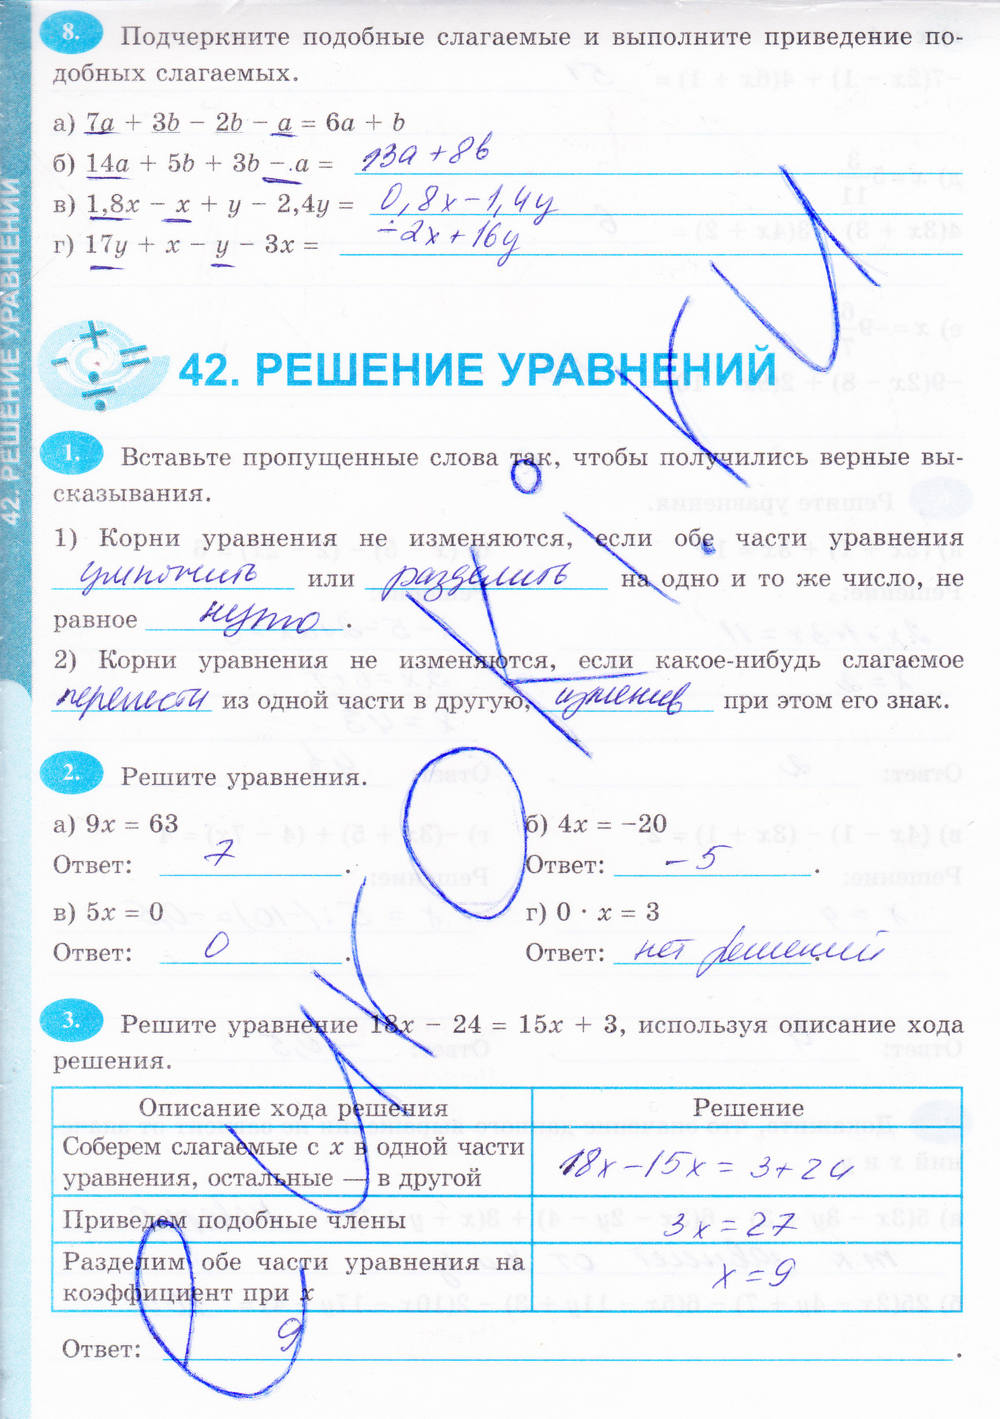 8. Подчеркните подобные слагаемые и выполните приведение по-
добных слагаемых.
а) 7a + 3b − 2b − a = 6a + b
б) 14a + 5b + 3b − a = 13a + 8b
в) 1,8x − x + y − 2,4y = 0,8x − 1,4y
г) 17y + x − y − 3x = −2x + 16y
42. РЕШЕНИЕ УРАВНЕНИЙ
42. РЕШЕНИЕ УРАВНЕНИЙ
1. Вставьте пропущенные слова так, чтобы получились верные вы-
сказывания.
1) Корни уравнения не изменяются, если обе части уравнения
умножить или разделить на одно и то же число, не
равное нулю.
2) Корни уравнения не изменяются, если какое-нибудь слагаемое
перенести из одной части в другую, изменив при этом его знак.
2. Решите уравнения.
а) 9x = 63 б) 4x = −20
Ответ: 7. Ответ: −5.
в) 5x = 0 г) 0 · x = 3
Ответ: 0. Ответ: нет решений.
3. Решите уравнение 18x − 24 = 15x + 3, используя описание хода
решения.
Описание хода решения Решение
Соберем слагаемые с x в одной части
уравнения, остальные — в другой 18x − 15x = 3 + 24
Приведем подобные члены 3x = 27
Разделим обе части уравнения на
коэффициент при x x = 9
Ответ: 9.